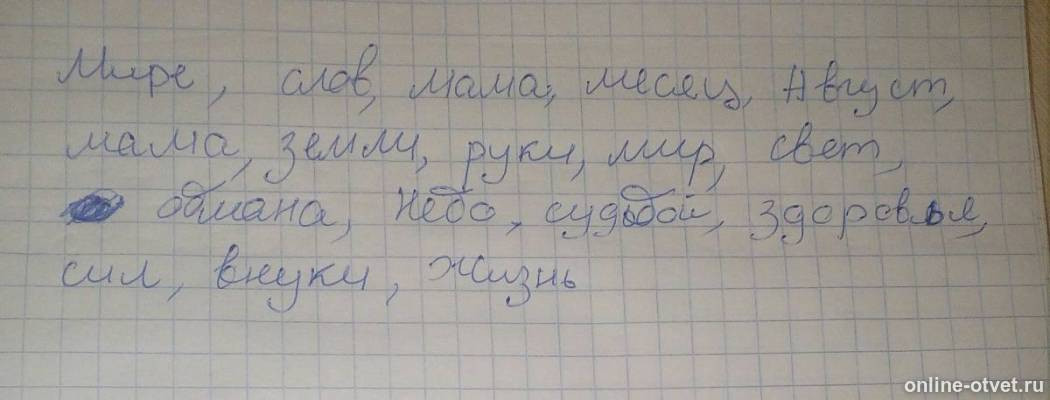 Мире, слов, мама, месяц, Август,
мама, земли, руки, мир, свет,
обмана, Небо, судьбой, здоровья,
сил, внуки, жизнь
online-otvet.ru